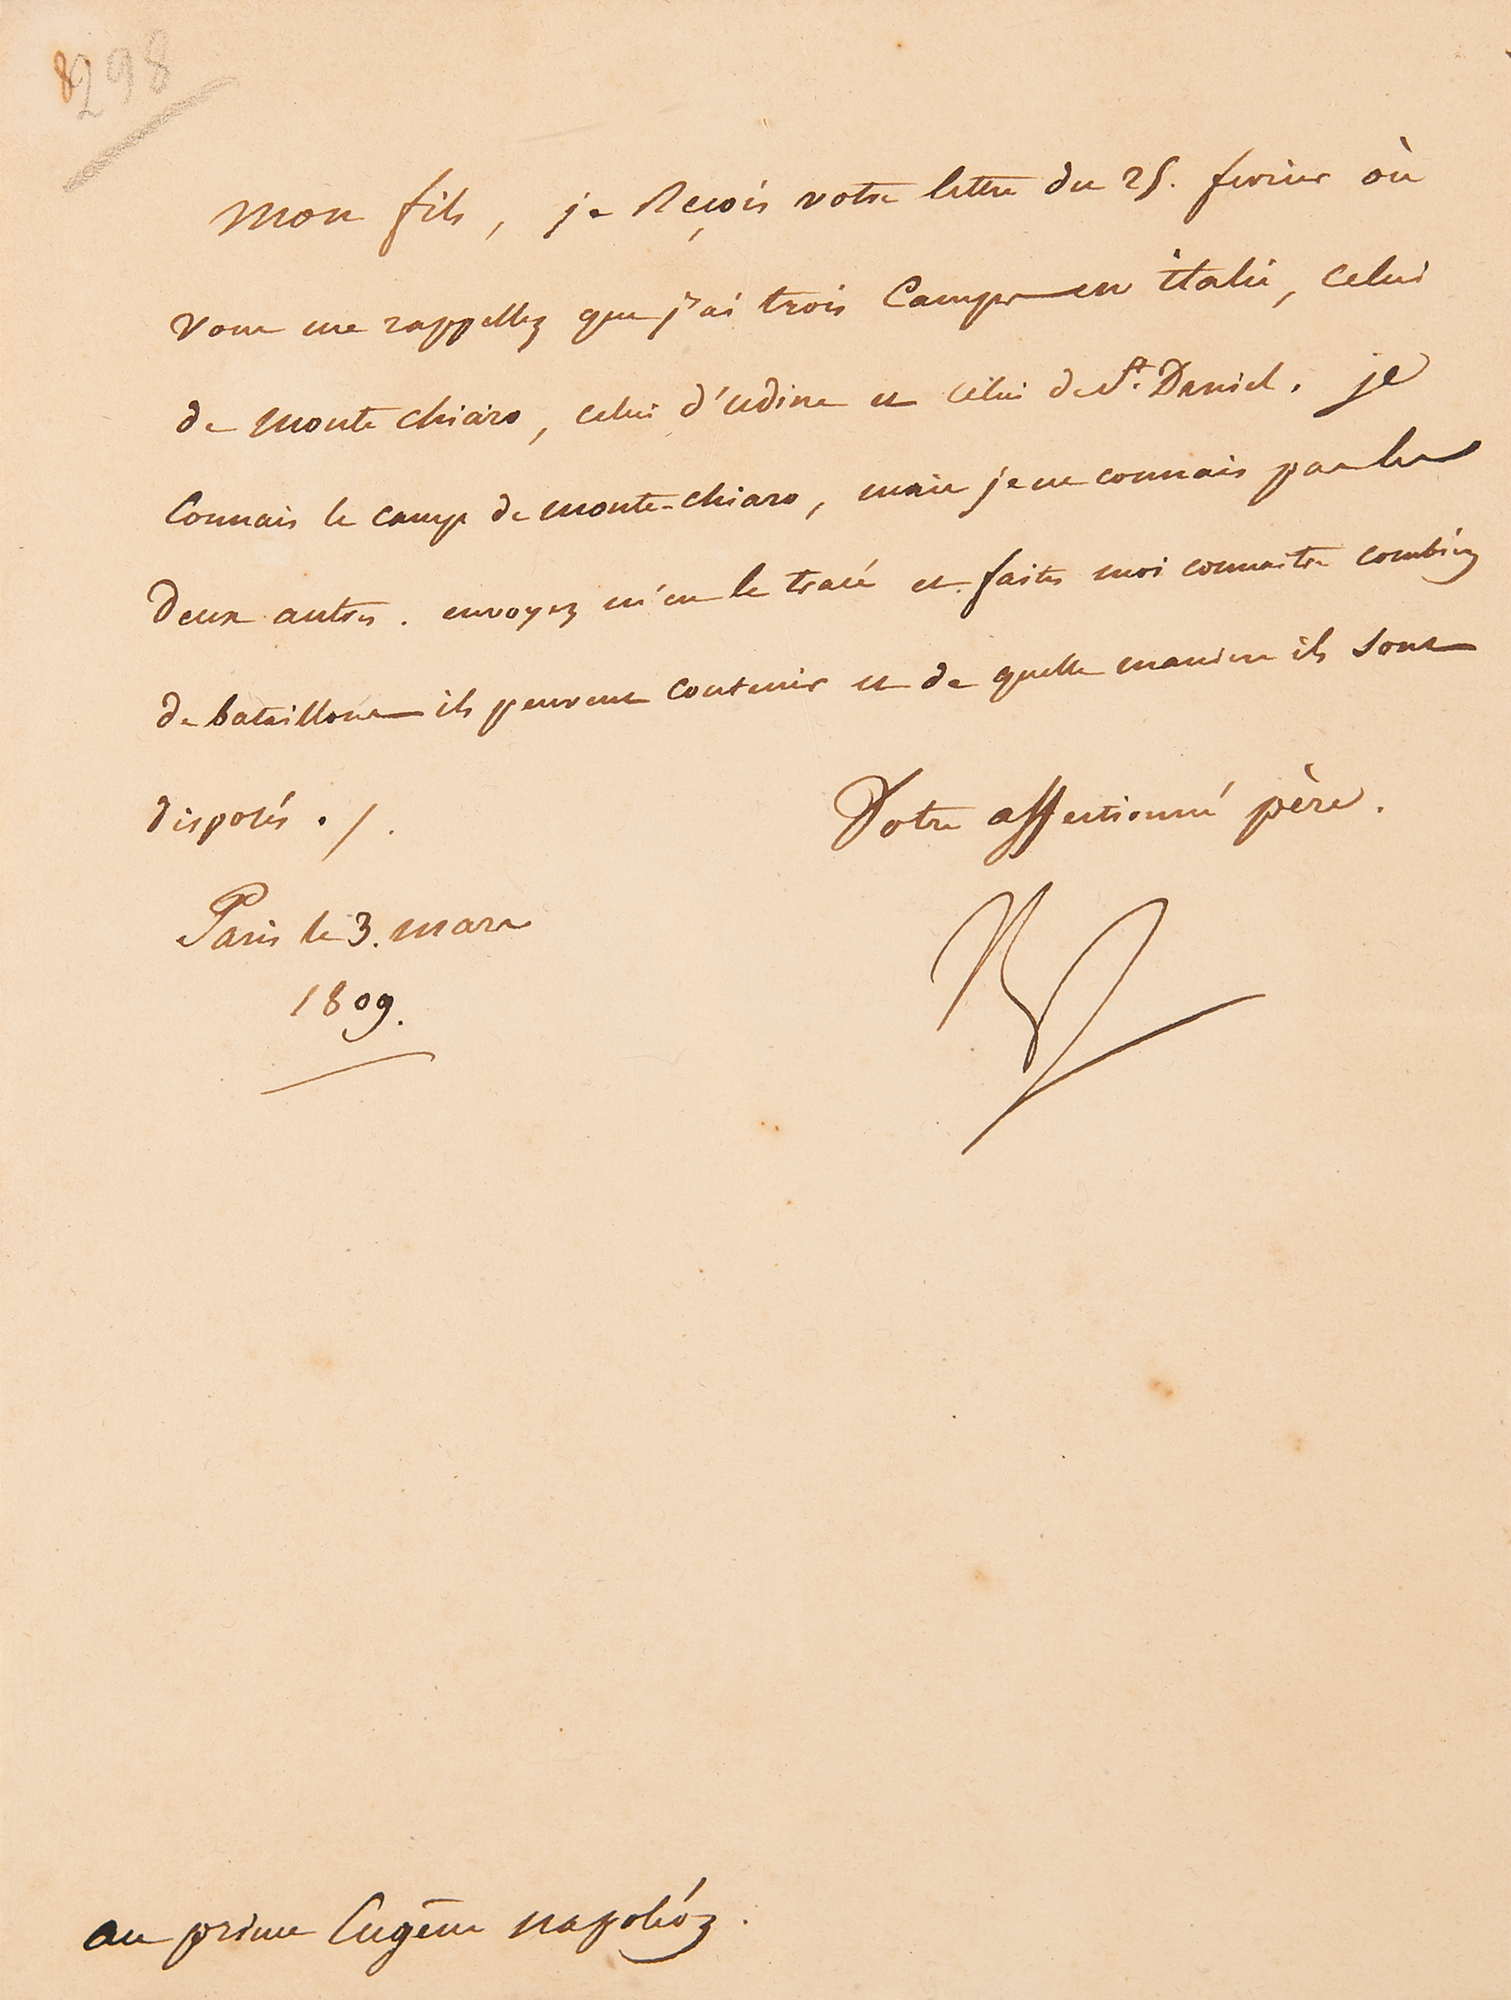 8298
Mon fils, je reçois votre lettre du 25. fevrier où
vous me rappellez que j'ai trois Camps en italie, celui
de Monte chiaro, celui d'udine et celui de St. Daniel. je
Connais le camp de monte-chiaro, mais je ne connais pas les
Deux autres. envoyez m'en le tracé et faites moi connaitre combien
de bataillons ils peuvent contenir et de quelle maniere ils sont
disposés ./.
Votre affectionné père.
Paris le 3. mars
1809.
au prince Eugène napoléon.